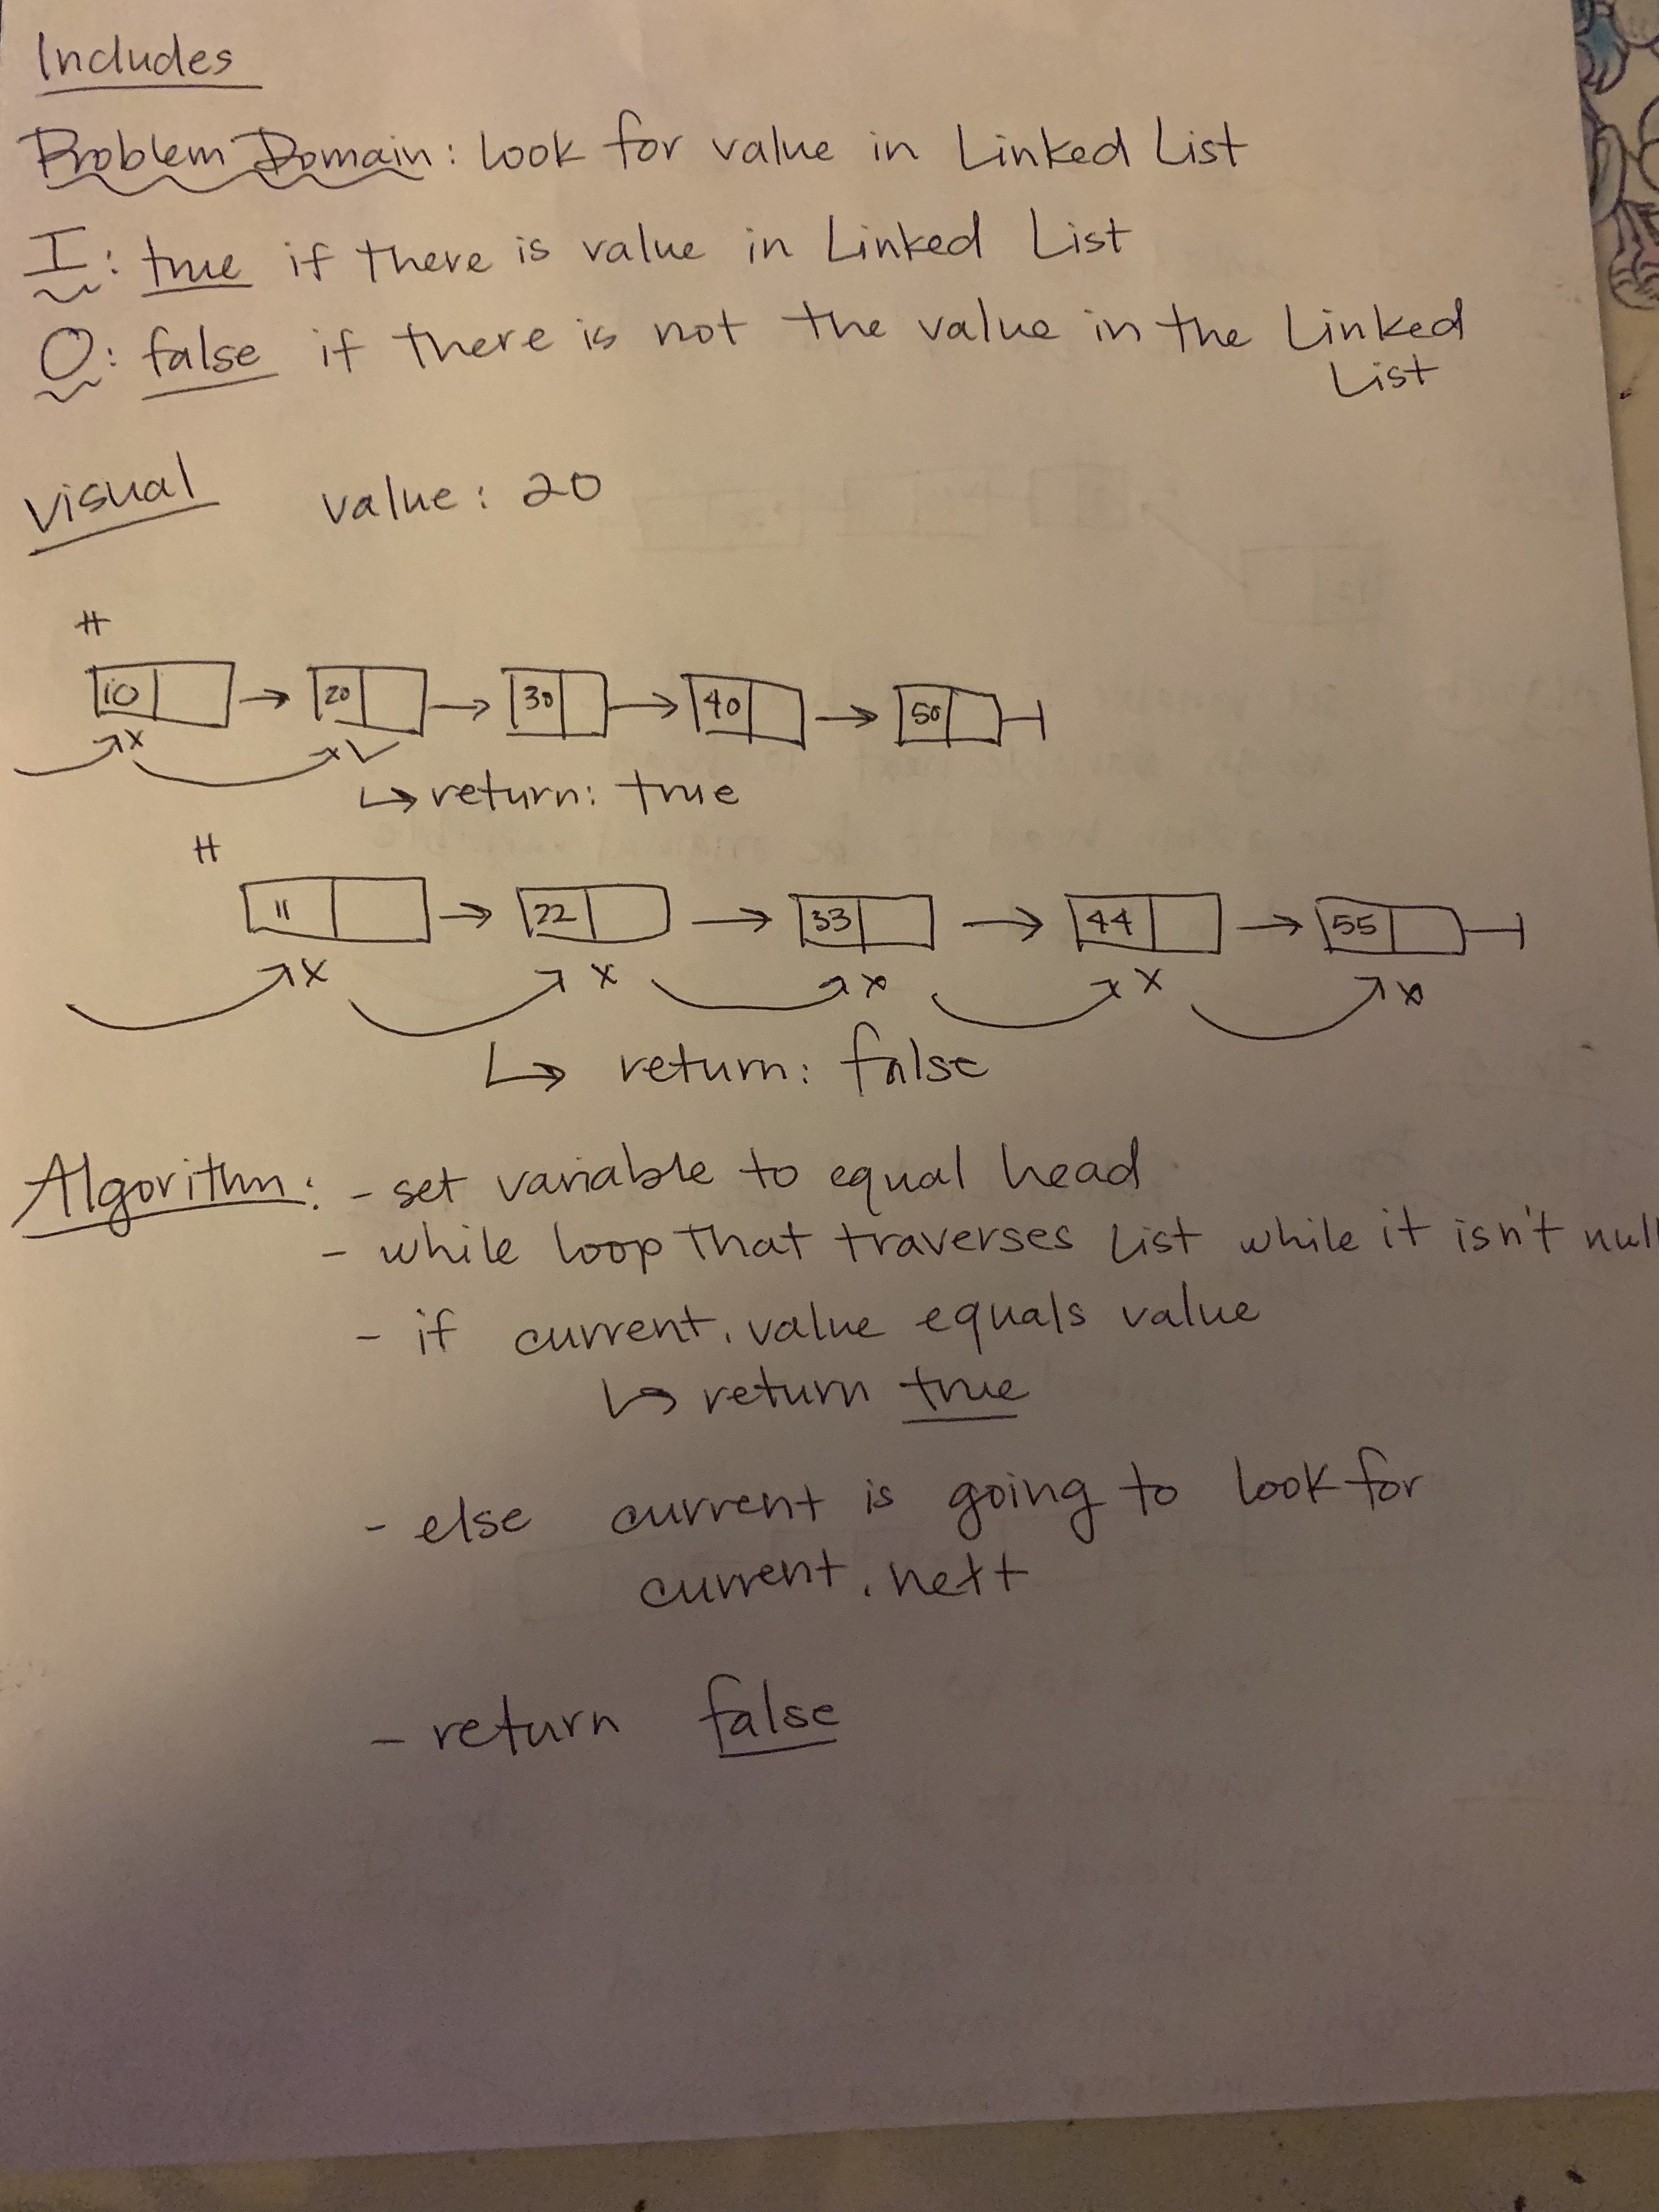 Includes
Problem Domain: look for value in Linked List
I: true if there is value in Linked List
O: false if there is not the value in the Linked
List
Visual value: 20
H
10 → 20 → 30 → 40 → 50
x x ✓
↳ return: true
H
11 → 22 → 33 → 44 → 55
x x x x x
↳ return: false
Algorithm: - set variable to equal head
- while loop that traverses List while it isn't null
- if current.value equals value
↳ return true
- else current is going to look for
current.next
- return false